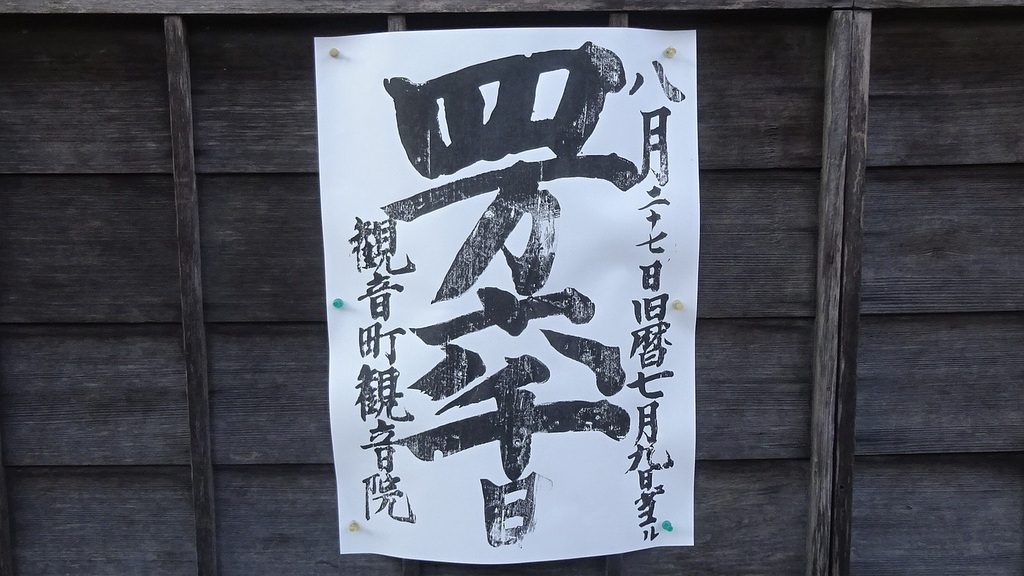 八月二十七日旧暦七月九日ニ当ル
四万六千日
観音町観音院